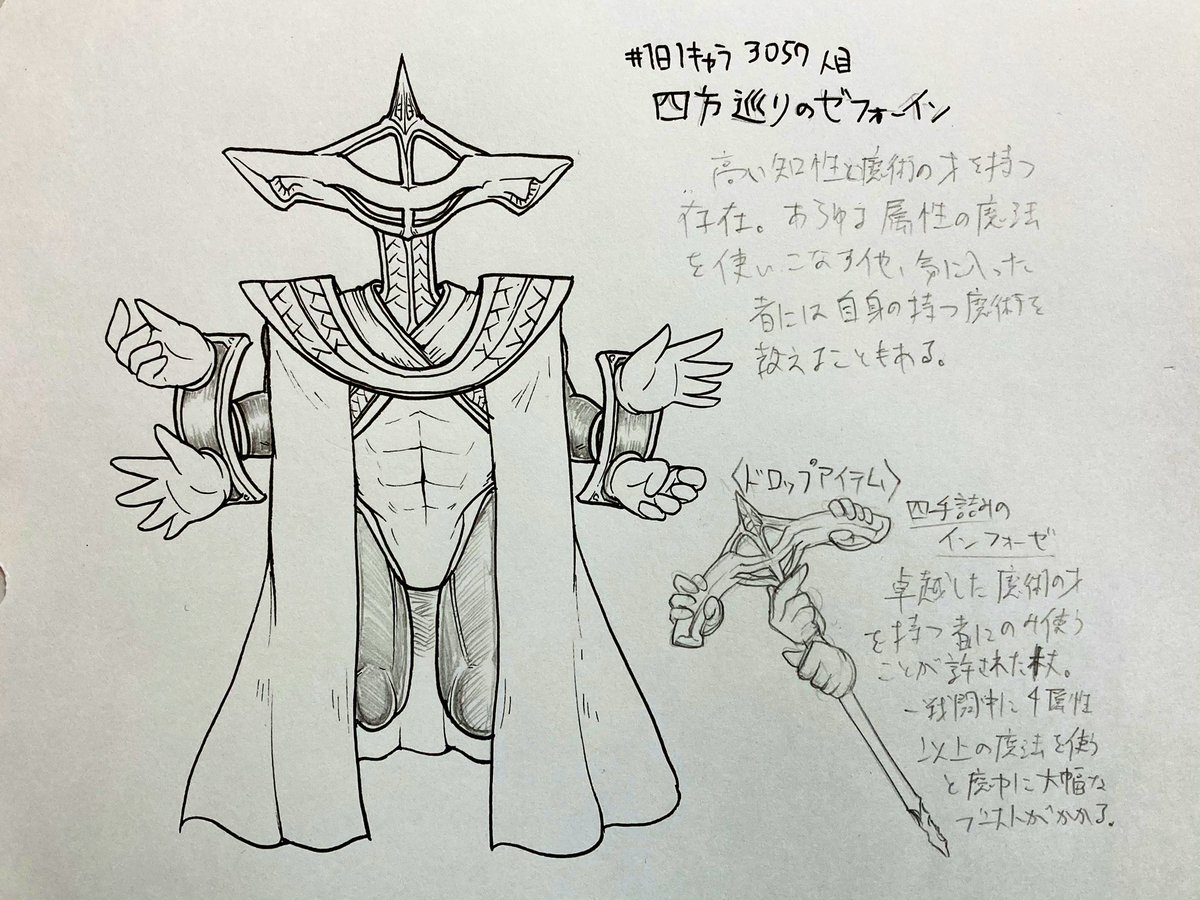 #1日1キャラ 3057人目
四方巡りのゼフォーイン
高い知性と魔術の才を持つ
存在。あらゆる属性の魔法
を使いこなす他、気に入った
者には自身の持つ魔術を
教えることもある。
〈ドロップアイテム〉
四手詰みの
インフォーゼ
卓越した魔術の才
を持つ者にのみ使う
ことが許された杖。
一戦闘中に4属性
以上の魔法を使う
と魔力に大幅な
ブーストがかかる。